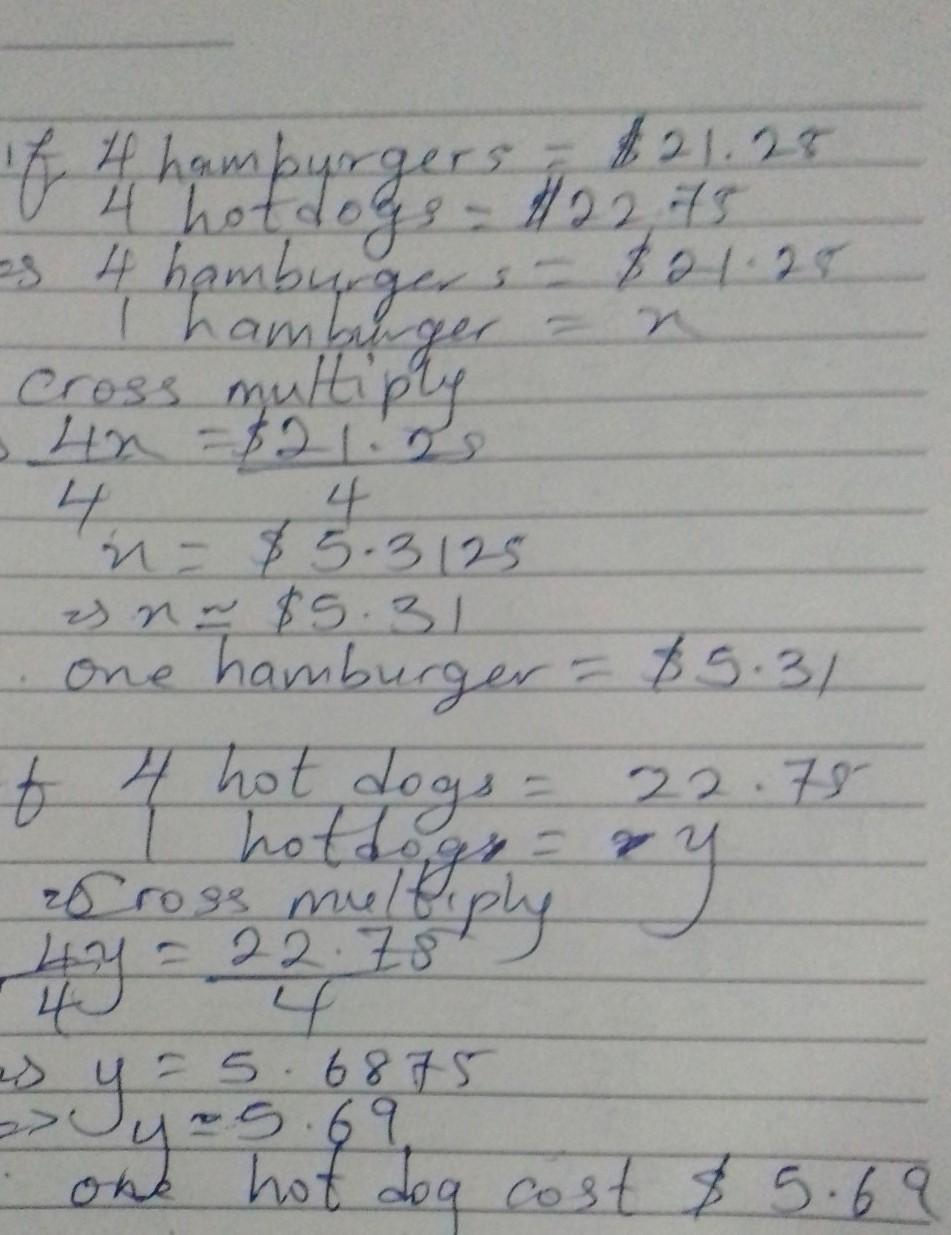 if 4 hamburgers = $21.25
4 hotdogs = $22.75
=> 4 hamburgers = $21.25
1 hamburger = x
cross multiply
4x = $21.25
4 4
x = $5.3125
=> x ≃ $5.31
. one hamburger = $5.31
if 4 hot dogs = 22.75
1 hotdogs = y
=> Cross multiply
4y = 22.75
4 4
=> y = 5.6875
=> y ≈ 5.69
. one hot dog cost $5.69